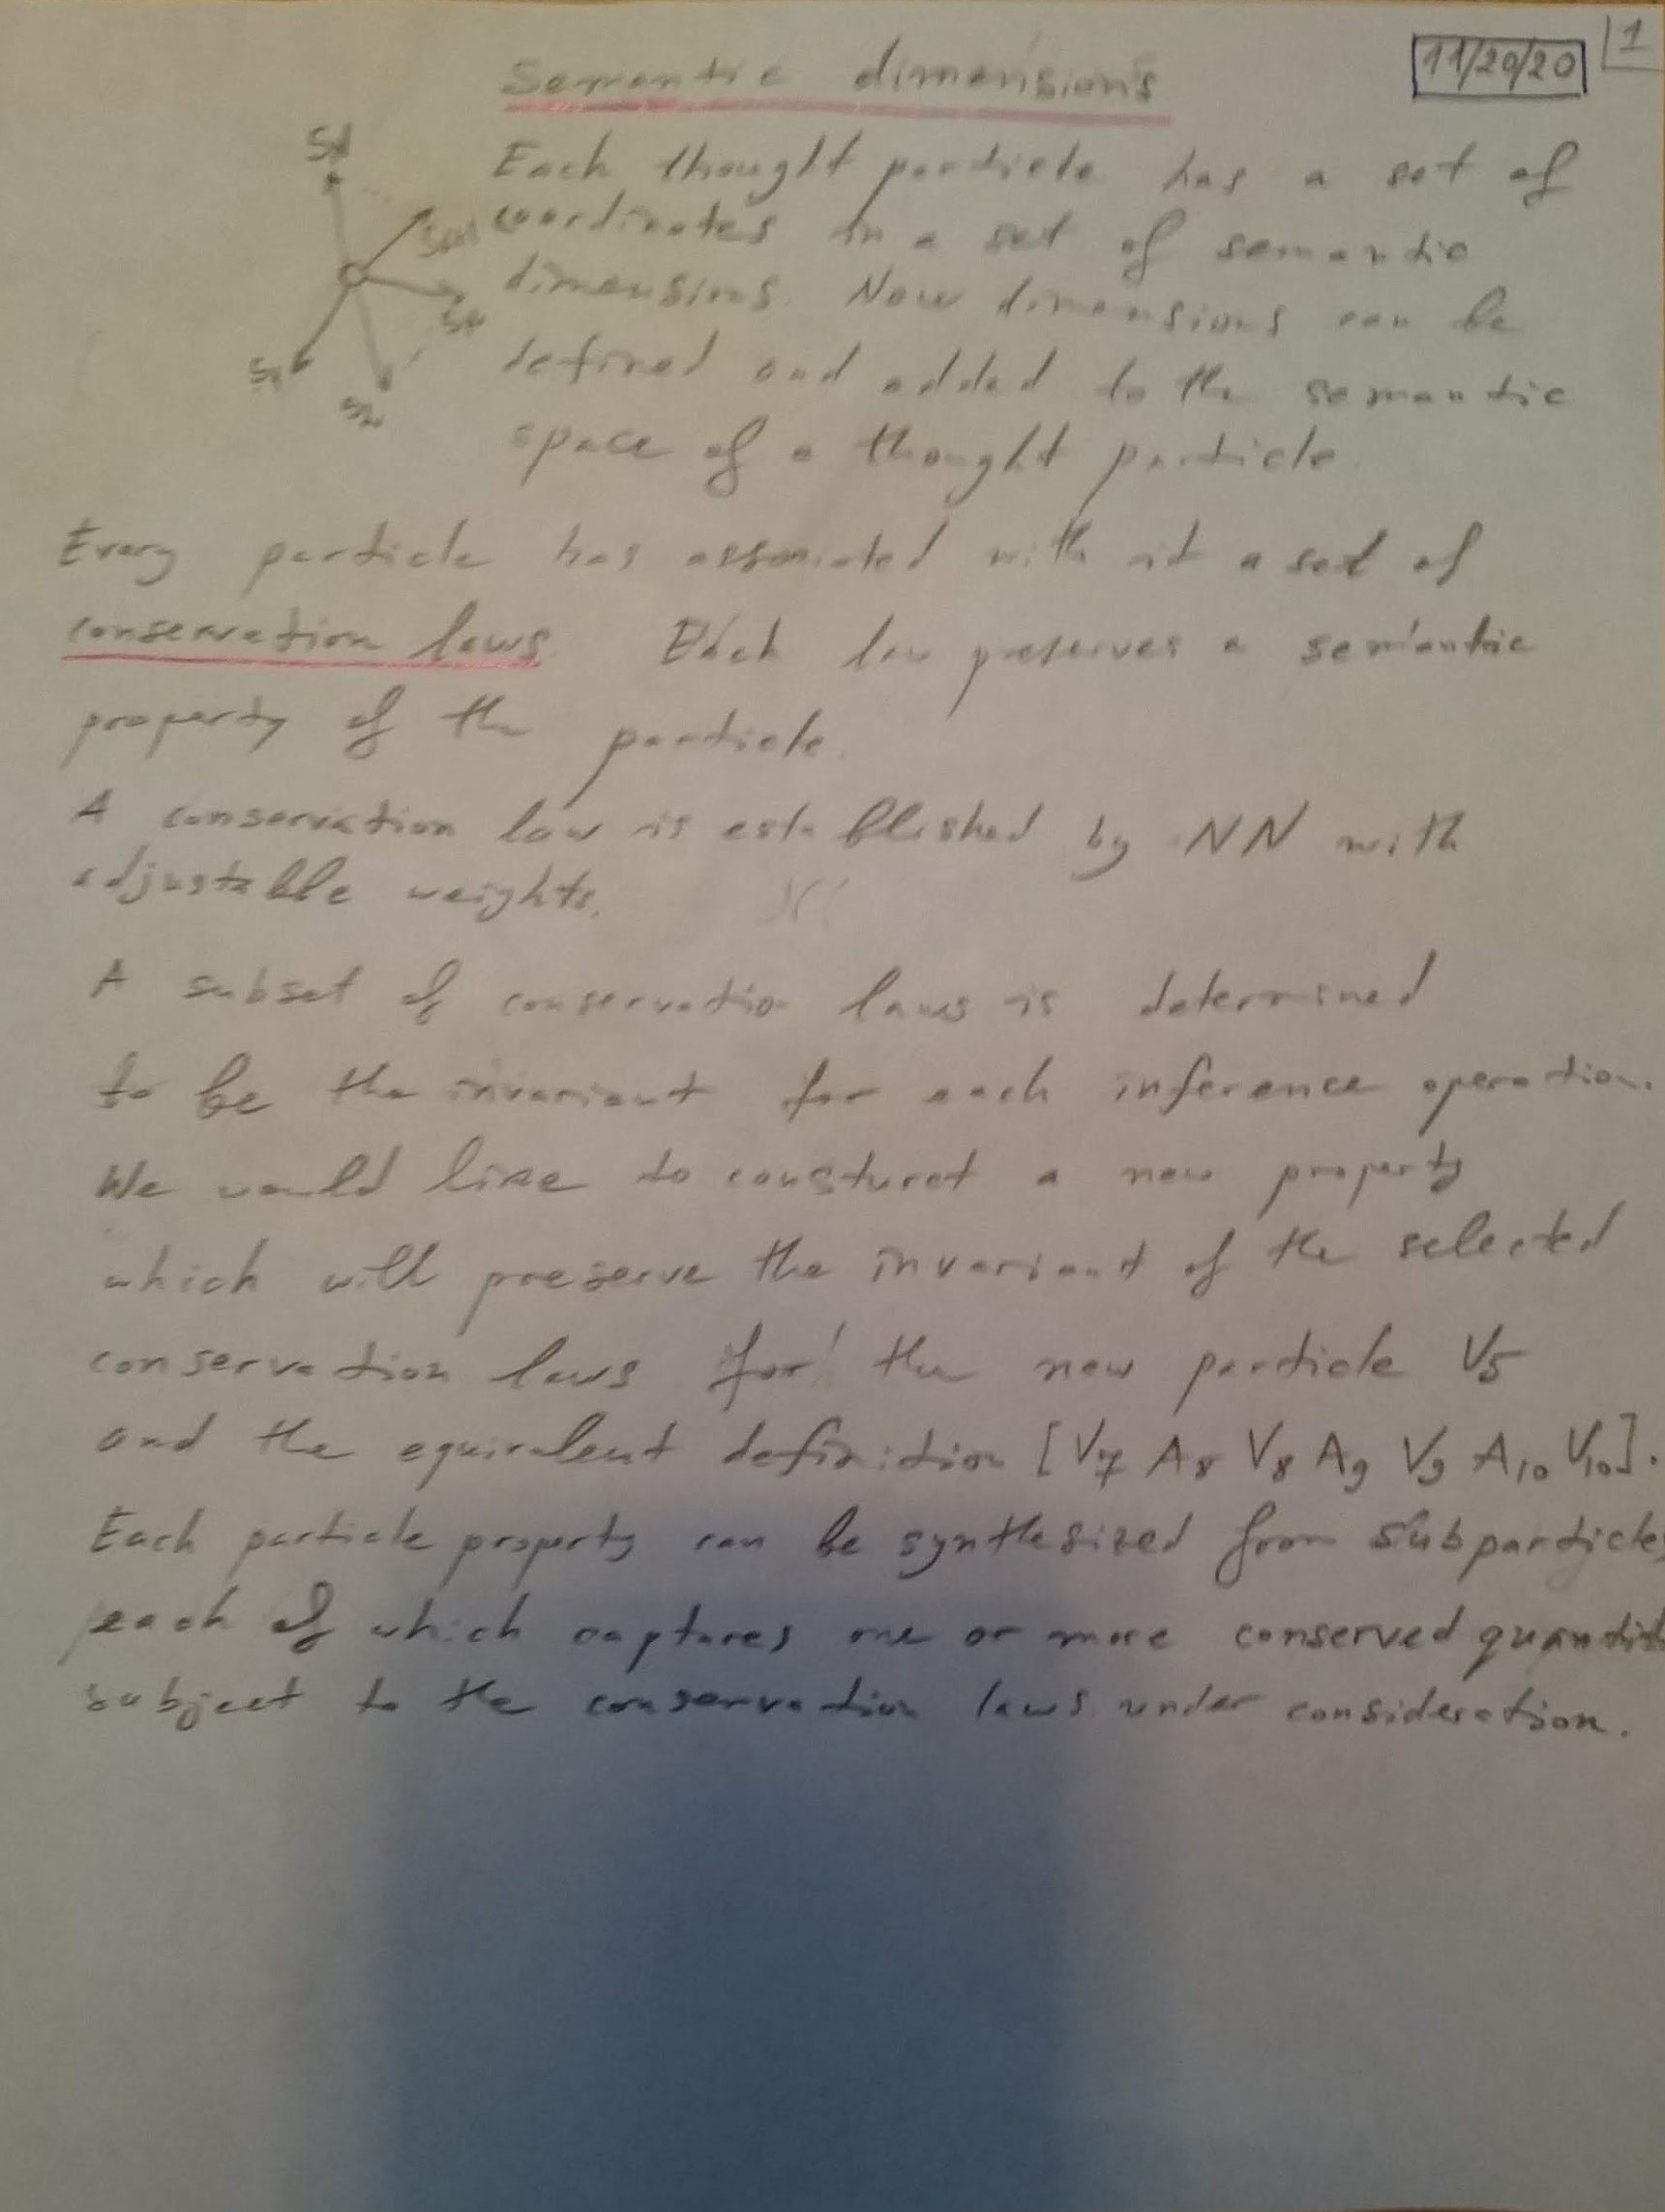 Semantic dimensions
11/20/20
1
Each thought particle has a set of
coordinates in a set of semantic
dimensions. New dimensions can be
defined and added to the semantic
space of a thought particle.
S1
S2
Every particle has associated with it a set of
conservation laws. Each law preserves a semantic
property of the particle.
A conservation law is established by NN with
adjustable weights.
A subset of conservation laws is determined
to be the invariant for each inference operation.
We would like to consturct a new property
which will preserve the invariant of the selected
conservation laws for the new particle V5
and the equivalent definition [V7 A8 V8 A9 V9 A10 V10].
Each particle property can be synthesized from subparticles
each of which captures one or more conserved quantit
subject to the conservation laws under consideration.